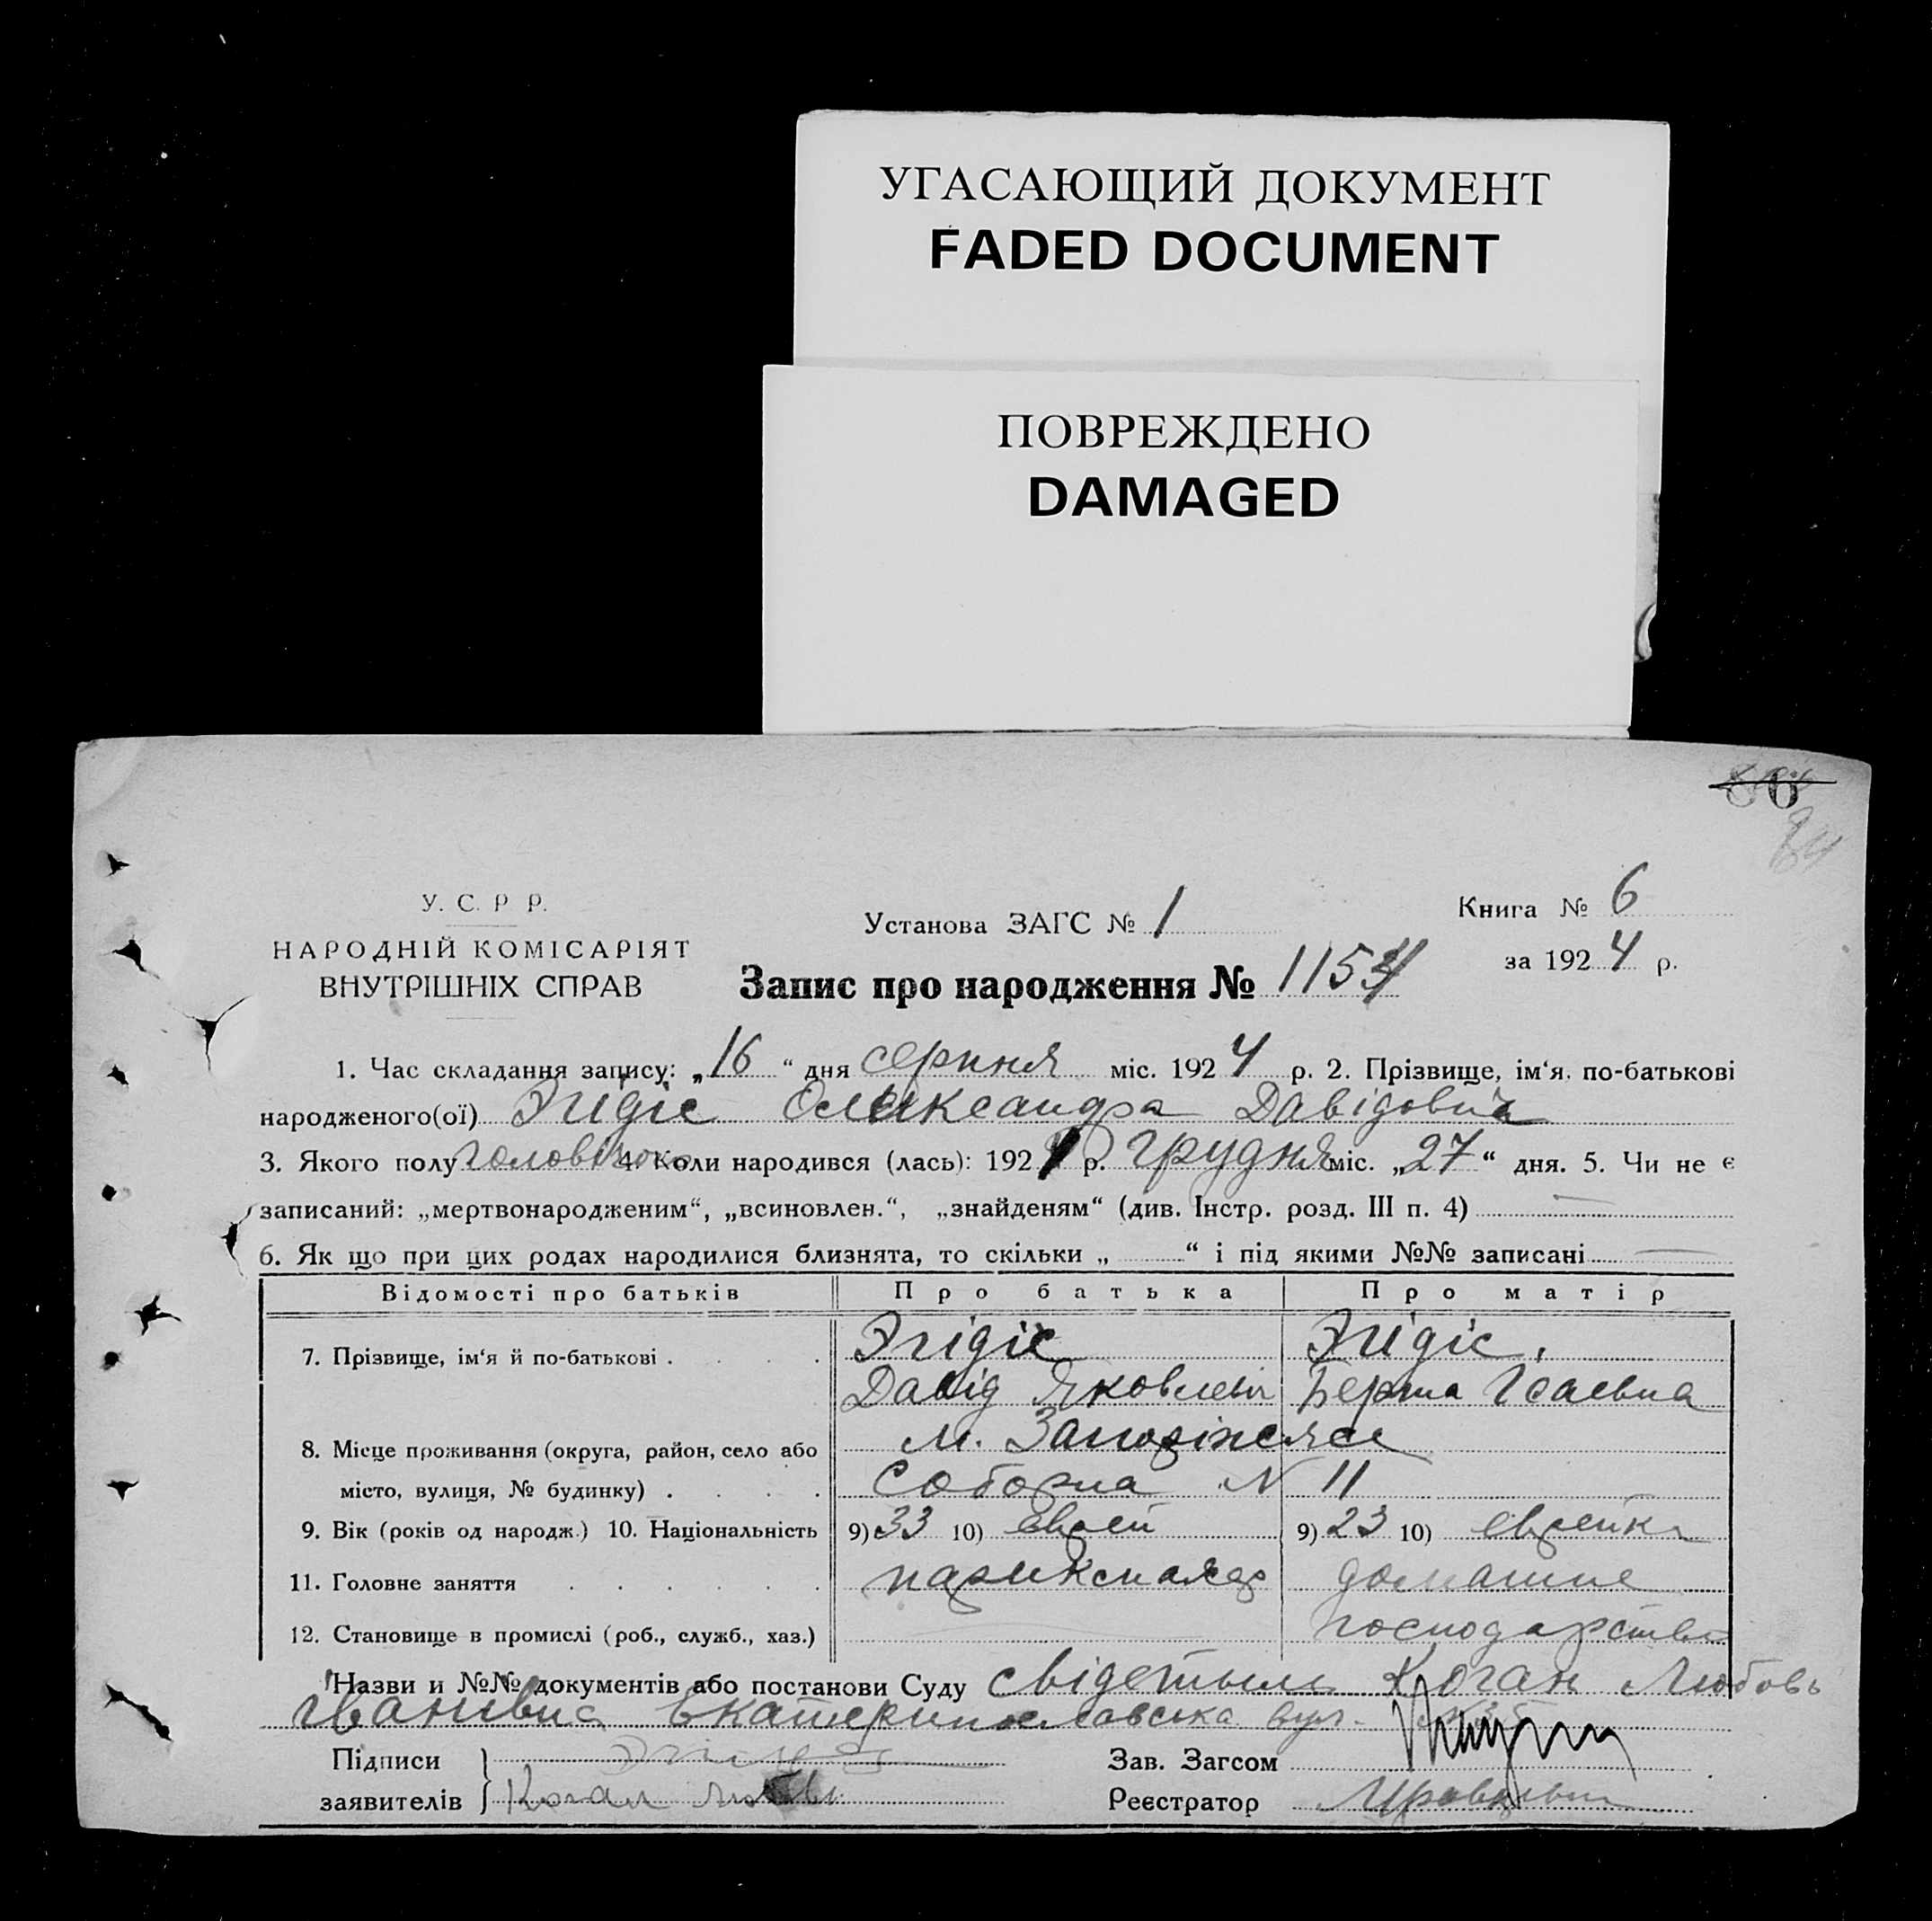 УГАСАЮЩИЙ ДОКУМЕНТ
FADED DOCUMENT
ПОВРЕЖДЕНО
DAMAGED
66
84
У. С. Р Р.
НАРОДНІЙ КОМІСАРІЯТ
ВНУТРІШНІХ СПРАВ
Установа ЗАГС № 1
Книга № 6
за 1924 р.
Запис про народження № 1154
1. Час складання запису: „16“ дня серпня міс. 1924 р. 2. Прізвище, ім‘я, по-батькові
народженого(ої) Эгідіс Олександра Давідовича
3. Якого полу 4. Коли народився (лась): 192 р. грудня міс. „27“ дня. 5. Чи не є
записаний: „мертвонародженим“, „всиновлен.“, „знайденям“ (див. Інстр. розд. III п. 4)
6. Як що при цих родах народилися близнята, то скільки „ “ і під якими №№ записані
Відомості про батьків Про батька Про матір
7. Прізвище, ім‘я й по-батькові . . . . . Эгідіс Эгідіс,
Давід Яковлевич Берта Ісаевна
8. Місце проживання (округа, район, село або м. Запоріжжя
місто, вулиця, № будинку) . . . . . Соборна N 11
9. Вік (років од народж.) 10. Національність 9) 33 10) еврей 9) 23 10) еврейка
11. Головне заняття . . . . . . домашне
12. Становище в промислі (роб., служб., хаз.) господарство
Назви и №№ документів або постанови Суду Коган Любовь
Іванівна Екатеринославська вул.
Підписи
заявителів Коган
Зав. Загсом
Реєстратор